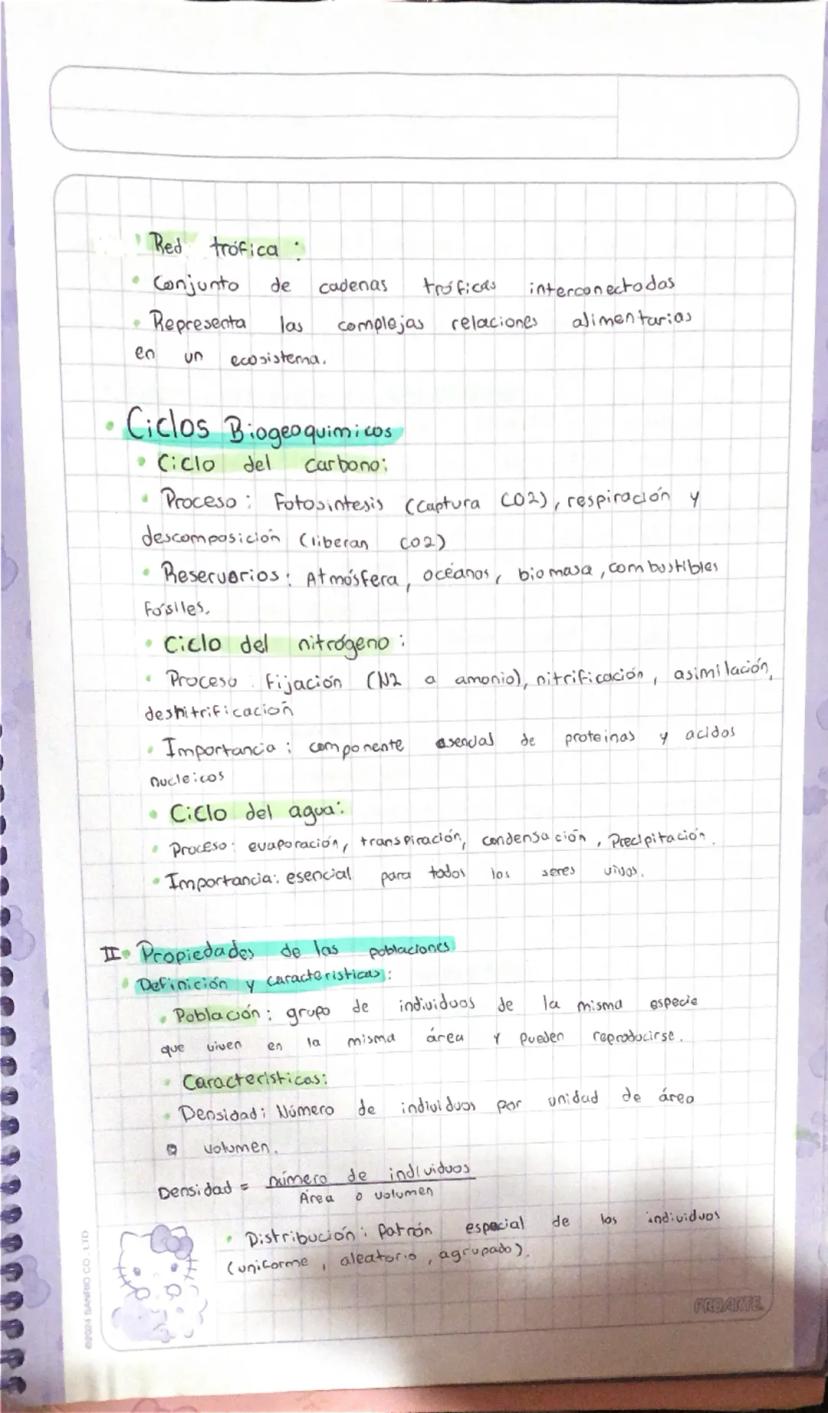 Red trófica :
• Conjunto de cadenas tróficas interconectadas
• Representa las complejas relaciones alimentarias
en un ecosistema.
• Ciclos Biogeoquimicos
• Ciclo del carbono:
• Proceso : Fotosintesis (Captura CO2), respiración y
descomposición (liberan CO2)
• Reservorios : Atmósfera, océanos, biomasa, combustibles
fósiles.
• Ciclo del nitrógeno :
• Proceso . Fijación (N2 a amonio), nitrificación, asimilación,
desnitrificación
• Importancia : componente esencial de proteinas y acidos
nucleicos
• Ciclo del agua:
• Proceso: evaporación, transpiración, condensación, Precipitación.
• Importancia: esencial para todos los seres vivos.
II• Propiedades de las poblaciones
• Definición y caracteristicas:
• Población : grupo de individuos de la misma especie
que viven en la misma área y pueden reproducirse.
• Caracteristicas:
• Densidad: Número de individuos por unidad de área
o volumen.
Densidad = número de individuos
Área o volumen
• Distribución : Patrón espacial de los individuos
(uniforme, aleatorio, agrupado).
©2024 SANRIO CO., LTD
PROARTE